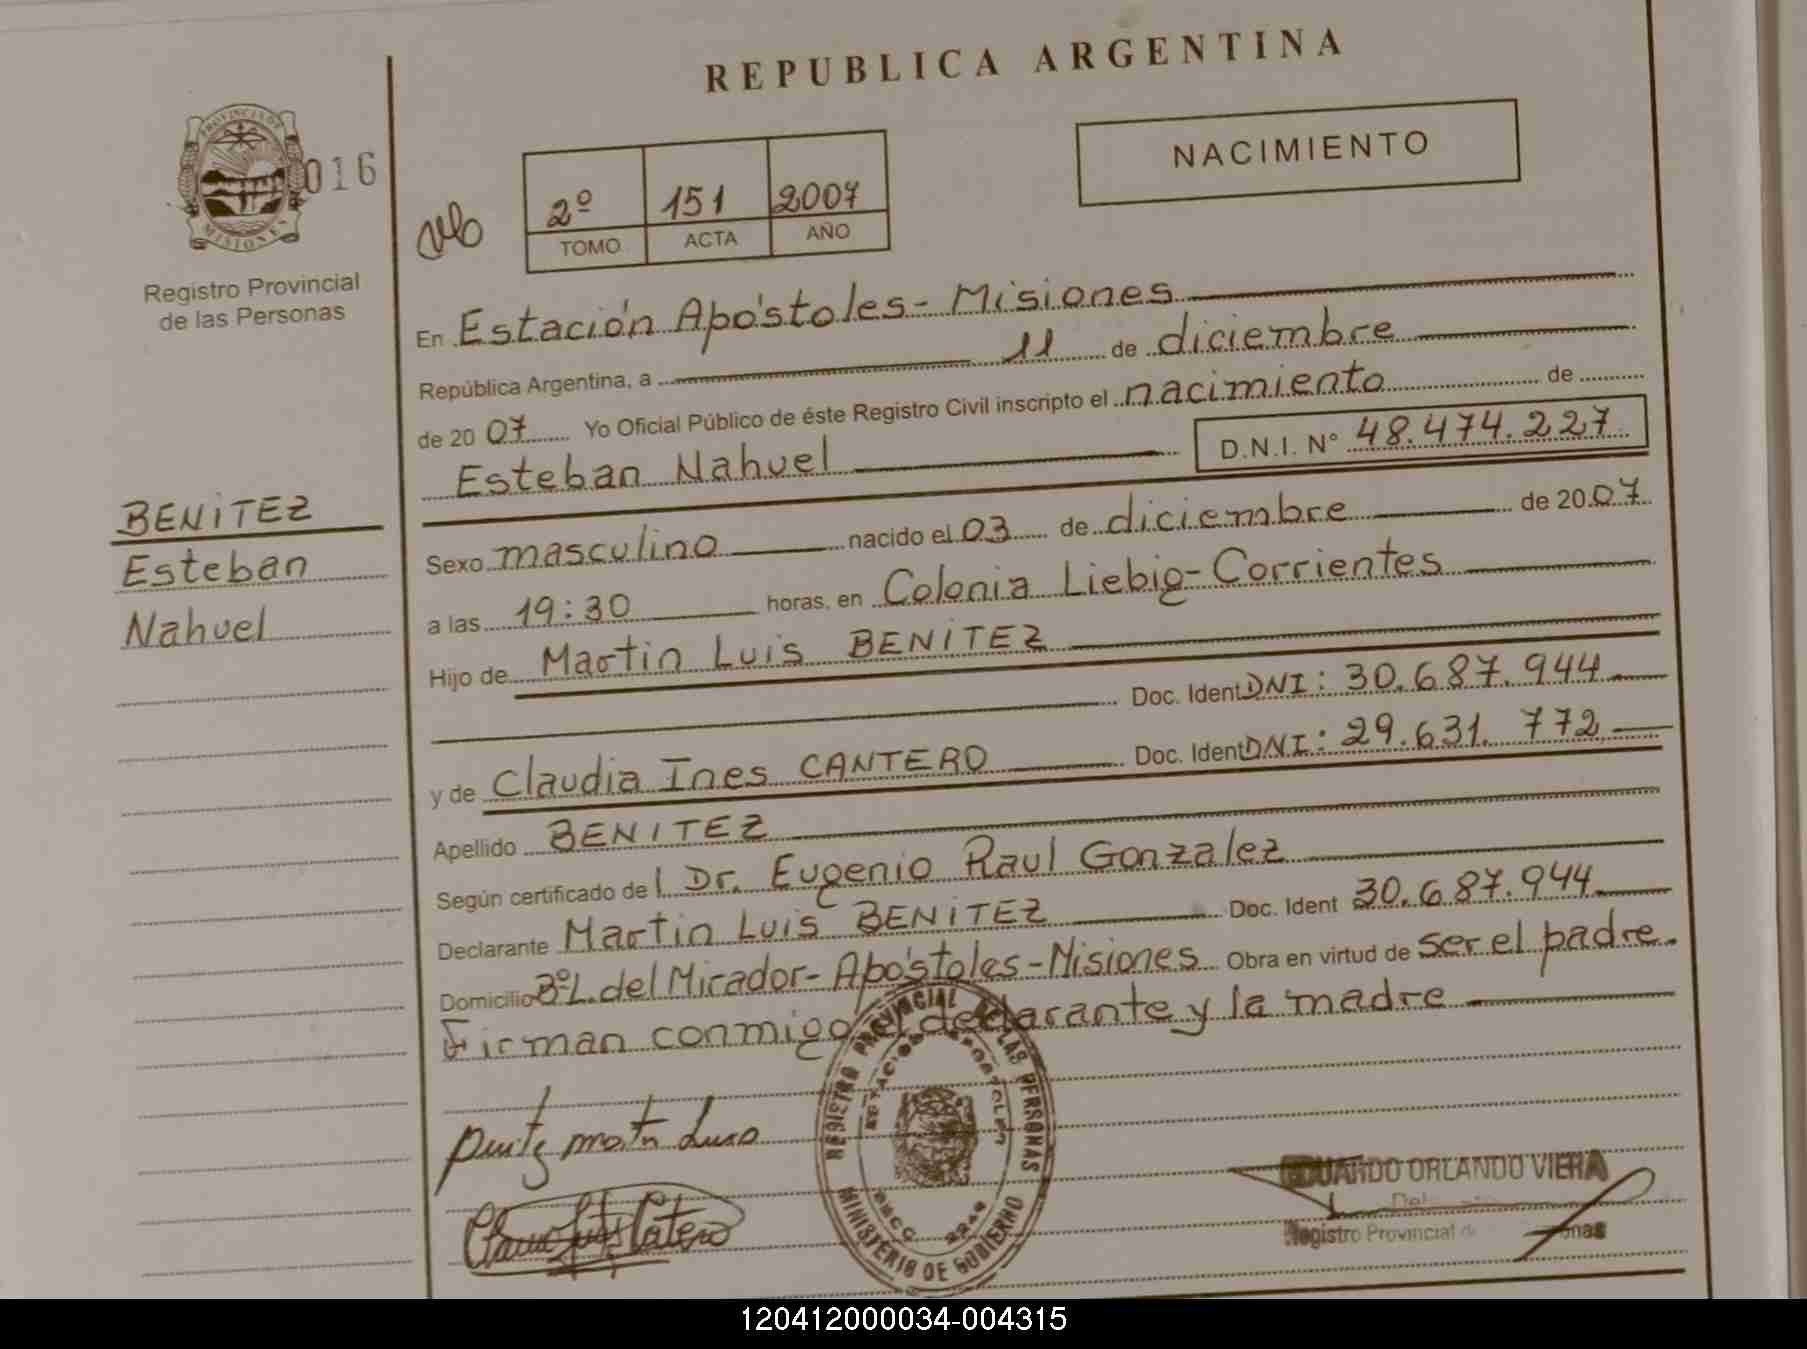 REPUBLICA ARGENTINA
PROVINCIA DE MISIONES
016
NACIMIENTO
2º 151 2007
TOMO ACTA AÑO
Registro Provincial
de las Personas
En Estación Apóstoles - Misiones
República Argentina, a 11 de diciembre
de 2007 Yo Oficial Público de éste Registro Civil inscripto el nacimiento de
Esteban Nahuel D.N.I. Nº 48.474.227
BENITEZ
Esteban
Nahuel
Sexo masculino nacido el 03 de diciembre de 2007
a las 19:30 horas, en Colonia Liebig - Corrientes
Hijo de Martin Luis BENITEZ
Doc. Ident DNI: 30.687.944
y de Claudia Ines CANTERO Doc. Ident DNI: 29.631.772
Apellido BENITEZ
Según certificado del Dr. Eugenio Raul Gonzalez
Declarante Martin Luis BENITEZ Doc. Ident 30.687.944
Domicilio Bº L. del Mirador - Apóstoles - Misiones Obra en virtud de ser el padre.
Firman conmigo el declarante y la madre
REGISTRO PROVINCIAL DE LAS PERSONAS
ESTACION APOSTOLES
MINISTERIO DE GOBIERNO
EDUARDO ORLANDO VIERA
Registro Provincial de
120412000034-004315